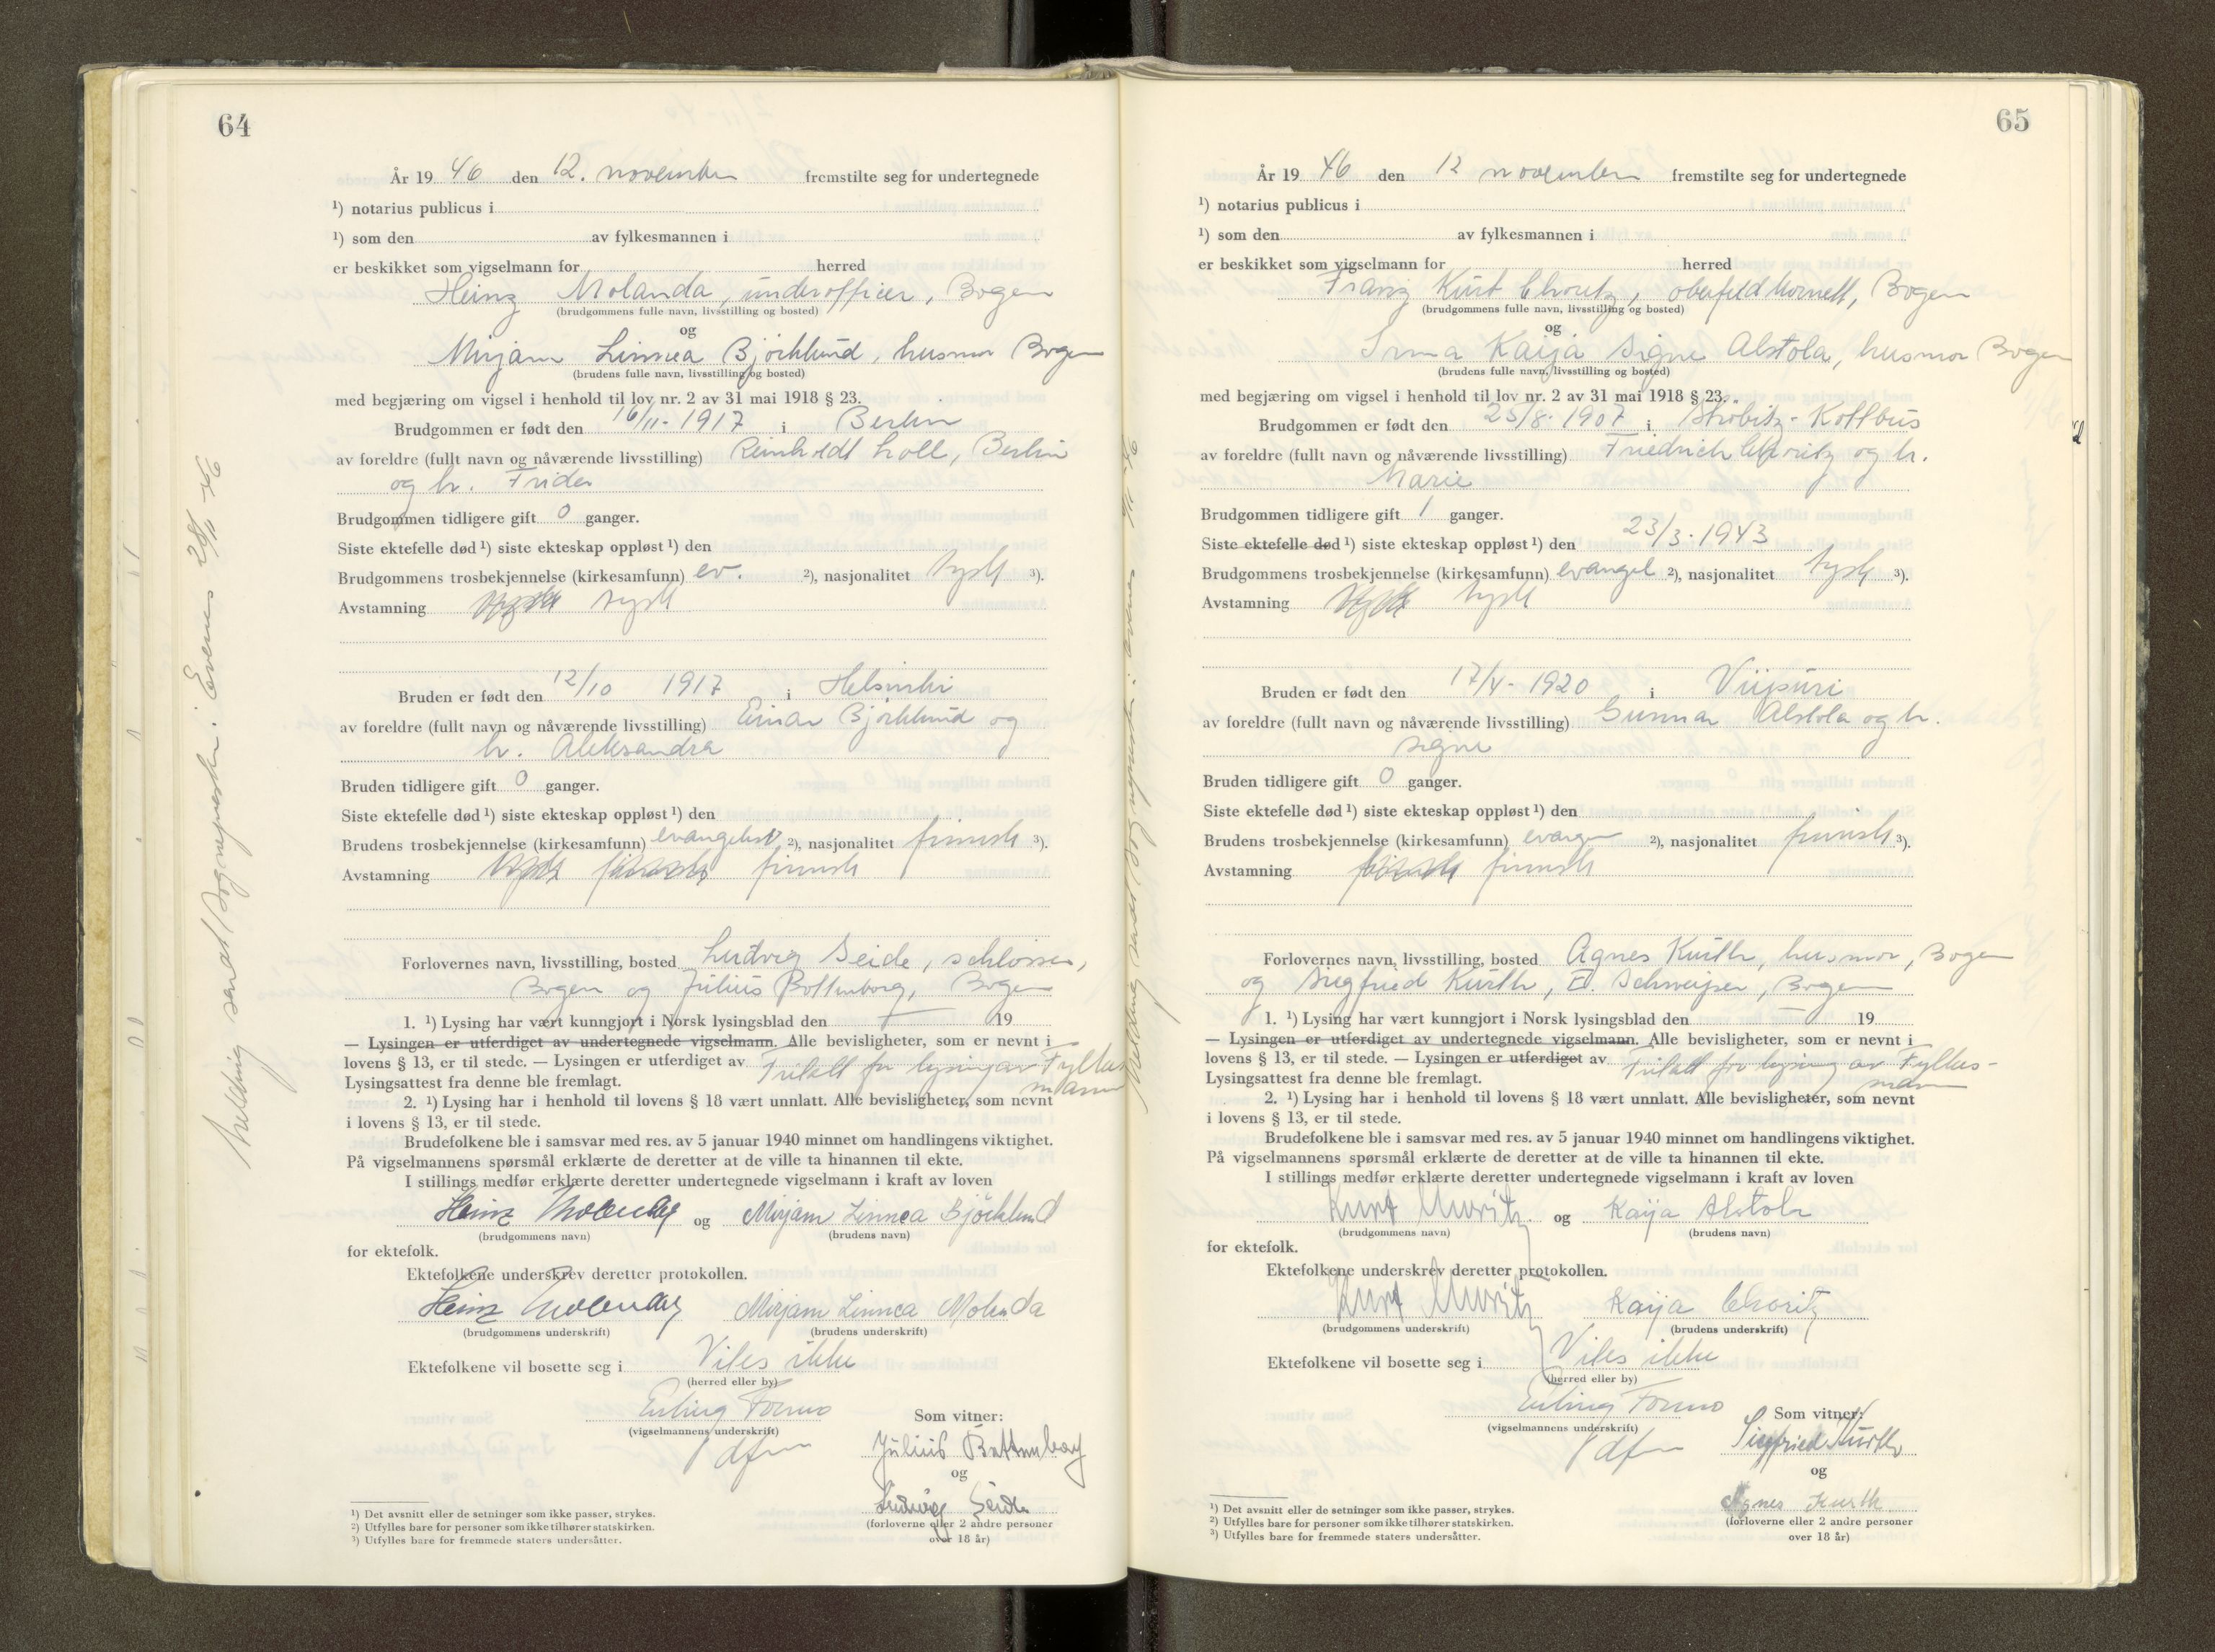 64
År 19 46 den 12. november fremstilte seg for undertegnede
¹) notarius publicus i
¹) som den av fylkesmannen i
er beskikket som vigselmann for herred
Heinz Molanda, underofficer, Bogen
(brudgommens fulle navn, livsstilling og bosted)
og
Mirjam Linnea Björklund, husmor Bogen
(brudens fulle navn, livsstilling og bosted)
med begjæring om vigsel i henhold til lov nr. 2 av 31 mai 1918 § 23.
Brudgommen er født den 16/11- 1917 i Berlin
av foreldre (fullt navn og nåværende livsstilling) Reinholdt Loll, Berlin
og h. Frida
Brudgommen tidligere gift 0 ganger.
Siste ektefelle død ¹) siste ekteskap oppløst ¹) den
Brudgommens trosbekjennelse (kirkesamfunn) ev. ²), nasjonalitet tysk ³).
Avstamning tysk
Bruden er født den 12/10 1917 i Helsinki
av foreldre (fullt navn og nåværende livsstilling) Einar Björklund og
h. Aleksandra
Bruden tidligere gift 0 ganger.
Siste ektefelle død ¹) siste ekteskap oppløst ¹) den
Brudens trosbekjennelse (kirkesamfunn) evangelisk ²), nasjonalitet finnsk ³).
Avstamning finnsk
Forlovernes navn, livsstilling, bosted Ludvig Seide, schlosser,
Bogen og Julius Bottenborg, Bogen
1. ¹) Lysing har vært kunngjort i Norsk lysingsblad den — 19
— Lysingen er utferdiget av undertegnede vigselmann. Alle bevisligheter, som er nevnt i
lovens § 13, er til stede. — Lysingen er utferdiget av Fritatt for lysing av Fylkes
mann
Lysingsattest fra denne ble fremlagt.
2. ¹) Lysing har i henhold til lovens § 18 vært unnlatt. Alle bevisligheter, som nevnt
i lovens § 13, er til stede.
Brudefolkene ble i samsvar med res. av 5 januar 1940 minnet om handlingens viktighet.
På vigselmannens spørsmål erklærte de deretter at de ville ta hinannen til ekte.
I stillings medfør erklærte deretter undertegnede vigselmann i kraft av loven
Heinz og Mirjam Linnea Björklund
(brudgommens navn) (brudens navn)
for ektefolk.
Ektefolkene underskrev deretter protokollen.
Heinz Mirjam Linnea Molenda
(brudgommens underskrift) (brudens underskrift)
Ektefolkene vil bosette seg i Vites ikke
(herred eller by)
Erling Formo Som vitner:
(vigselmannens underskrift)
dfm Julius Bottenborg
og
Ludwig Seide
(forloverne eller 2 andre personer
over 18 år)
¹) Det avsnitt eller de setninger som ikke passer, strykes.
²) Utfylles bare for personer som ikke tilhører statskirken.
³) Utfylles bare for fremmede staters undersåtter.
Melding sendt Sognepresten i Evenes 28/11 -46
65
År 19 46 den 12 november fremstilte seg for undertegnede
¹) notarius publicus i
¹) som den av fylkesmannen i
er beskikket som vigselmann for herred
Franz Kurt Choritz, Bogen
(brudgommens fulle navn, livsstilling og bosted)
og
Irma Kaija Signe Alstola, husmor Bogen
(brudens fulle navn, livsstilling og bosted)
med begjæring om vigsel i henhold til lov nr. 2 av 31 mai 1918 § 23.
Brudgommen er født den 25/8- 1907 i Ströbitz-Kottbus
av foreldre (fullt navn og nåværende livsstilling) Friedrich Choritz og h.
Marie
Brudgommen tidligere gift 1 ganger.
Siste ektefelle død ¹) siste ekteskap oppløst ¹) den 23/3- 1943
Brudgommens trosbekjennelse (kirkesamfunn) evangel ²), nasjonalitet tysk ³).
Avstamning tysk
Bruden er født den 17/4- 1920 i Viipuri
av foreldre (fullt navn og nåværende livsstilling) Gunnar Alstola og h.
Signe
Bruden tidligere gift 0 ganger.
Siste ektefelle død ¹) siste ekteskap oppløst ¹) den
Brudens trosbekjennelse (kirkesamfunn) evangen ²), nasjonalitet finnsk ³).
Avstamning finnsk
Forlovernes navn, livsstilling, bosted Agnes Kurth, husmor, Bogen
og Siegfried Kurth, Bogen
1. ¹) Lysing har vært kunngjort i Norsk lysingsblad den — 19
— Lysingen er utferdiget av undertegnede vigselmann. Alle bevisligheter, som er nevnt i
lovens § 13, er til stede. — Lysingen er utferdiget av Fritatt for lysing av Fylkes-
mann
Lysingsattest fra denne ble fremlagt.
2. ¹) Lysing har i henhold til lovens § 18 vært unnlatt. Alle bevisligheter, som nevnt
i lovens § 13, er til stede.
Brudefolkene ble i samsvar med res. av 5 januar 1940 minnet om handlingens viktighet.
På vigselmannens spørsmål erklærte de deretter at de ville ta hinannen til ekte.
I stillings medfør erklærte deretter undertegnede vigselmann i kraft av loven
Kurt Choritz og Kaija Alstola
(brudgommens navn) (brudens navn)
for ektefolk.
Ektefolkene underskrev deretter protokollen.
Kurt Choritz Kaija Choritz
(brudgommens underskrift) (brudens underskrift)
Ektefolkene vil bosette seg i Vites ikke
(herred eller by)
Erling Formo Som vitner:
(vigselmannens underskrift)
dfm Siegfried Kurth
og
Agnes Kurth
(forloverne eller 2 andre personer
over 18 år)
¹) Det avsnitt eller de setninger som ikke passer, strykes.
²) Utfylles bare for personer som ikke tilhører statskirken.
³) Utfylles bare for fremmede staters undersåtter.